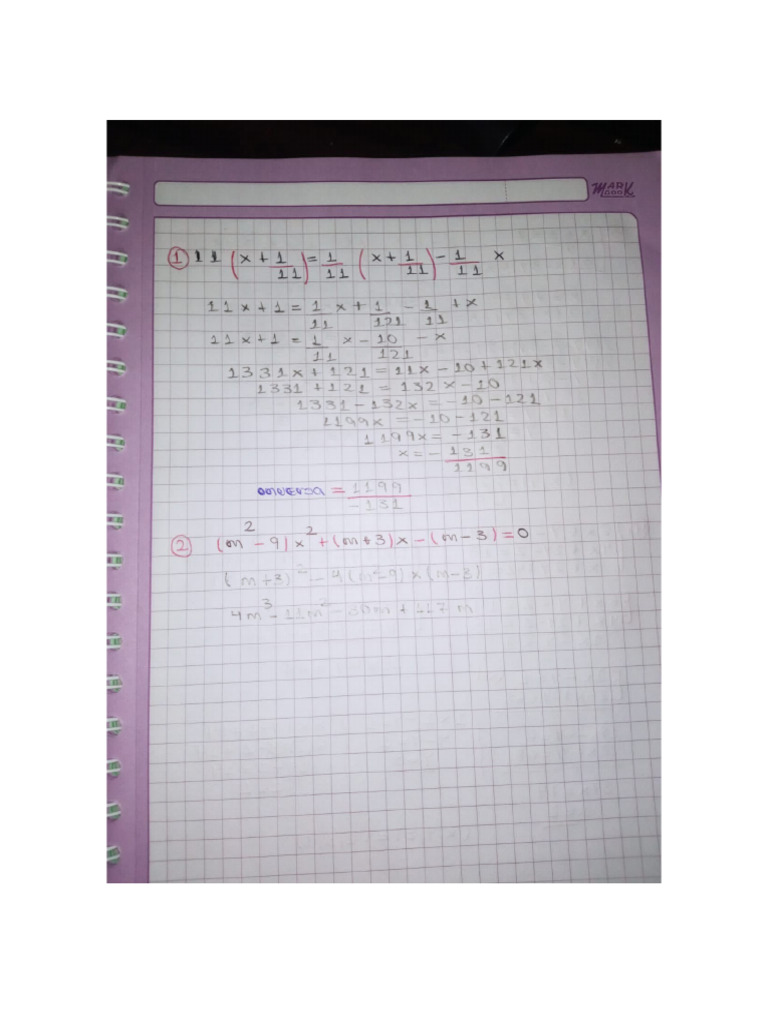 MARK
BOOK
① 11 (x + 1/11) = 1/11 (x + 1/11) - 1/11 x
11x + 1 = 1/11 x + 1/121 - 1/11 + x
11x + 1 = 1/11 x - 10/121 - x
1331x + 121 = 11x - 10 + 121x
1331 + 121 = 132x - 10
1331 - 132x = -10 - 121
1199x = -10 - 121
1199x = -131
x = - 131/1199
= 1199/-131
② (m² - 9) x² + (m + 3) x - (m - 3) = 0
(m + 3)² - 4 (m² - 9) x (m - 3)
4m³ - 11m² - 30m + 117 m